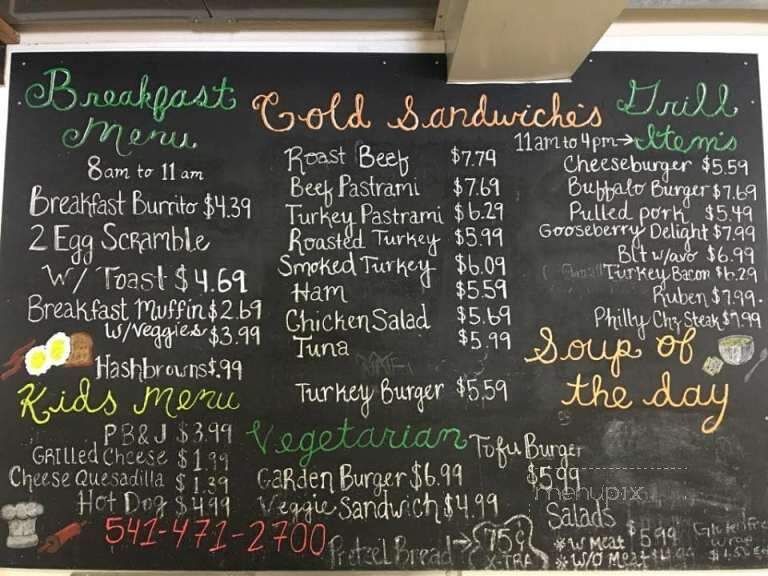 Breakfast
Menu
8am to 11am
Breakfast Burrito $4.39
2 Egg Scramble
W/ Toast $4.69
Breakfast Muffin $2.69
w/Veggies $3.99
Hashbrowns $.99
Kids Menu
PB&J $3.99
GRILLED Cheese $1.99
Cheese Quesadilla $1.39
Hot Dog $4.99
541-471-2700
Cold Sandwiches
Roast Beef $7.79
Beef Pastrami $7.69
Turkey Pastrami $6.29
Roasted Turkey $5.99
Smoked Turkey $6.09
Ham $5.59
Chicken Salad $5.69
Tuna $5.99
Turkey Burger $5.59
Vegetarian
Garden Burger $6.99
Veggie Sandwich $4.99
Tofu Burger
$5.99
Pretzel Bread → 75¢
X-TRA
Grill
Items
11am to 4pm→
Cheeseburger $5.59
Buffalo Burger $7.69
Pulled pork $5.49
Gooseberry Delight $7.99
Blt w/avo $6.99
Turkey Bacon $6.29
Ruben $7.99
Philly Chz Steak $7.99
Soup of
the day
menupix
Salads
*w/ Meat $5.99
*W/O Meat